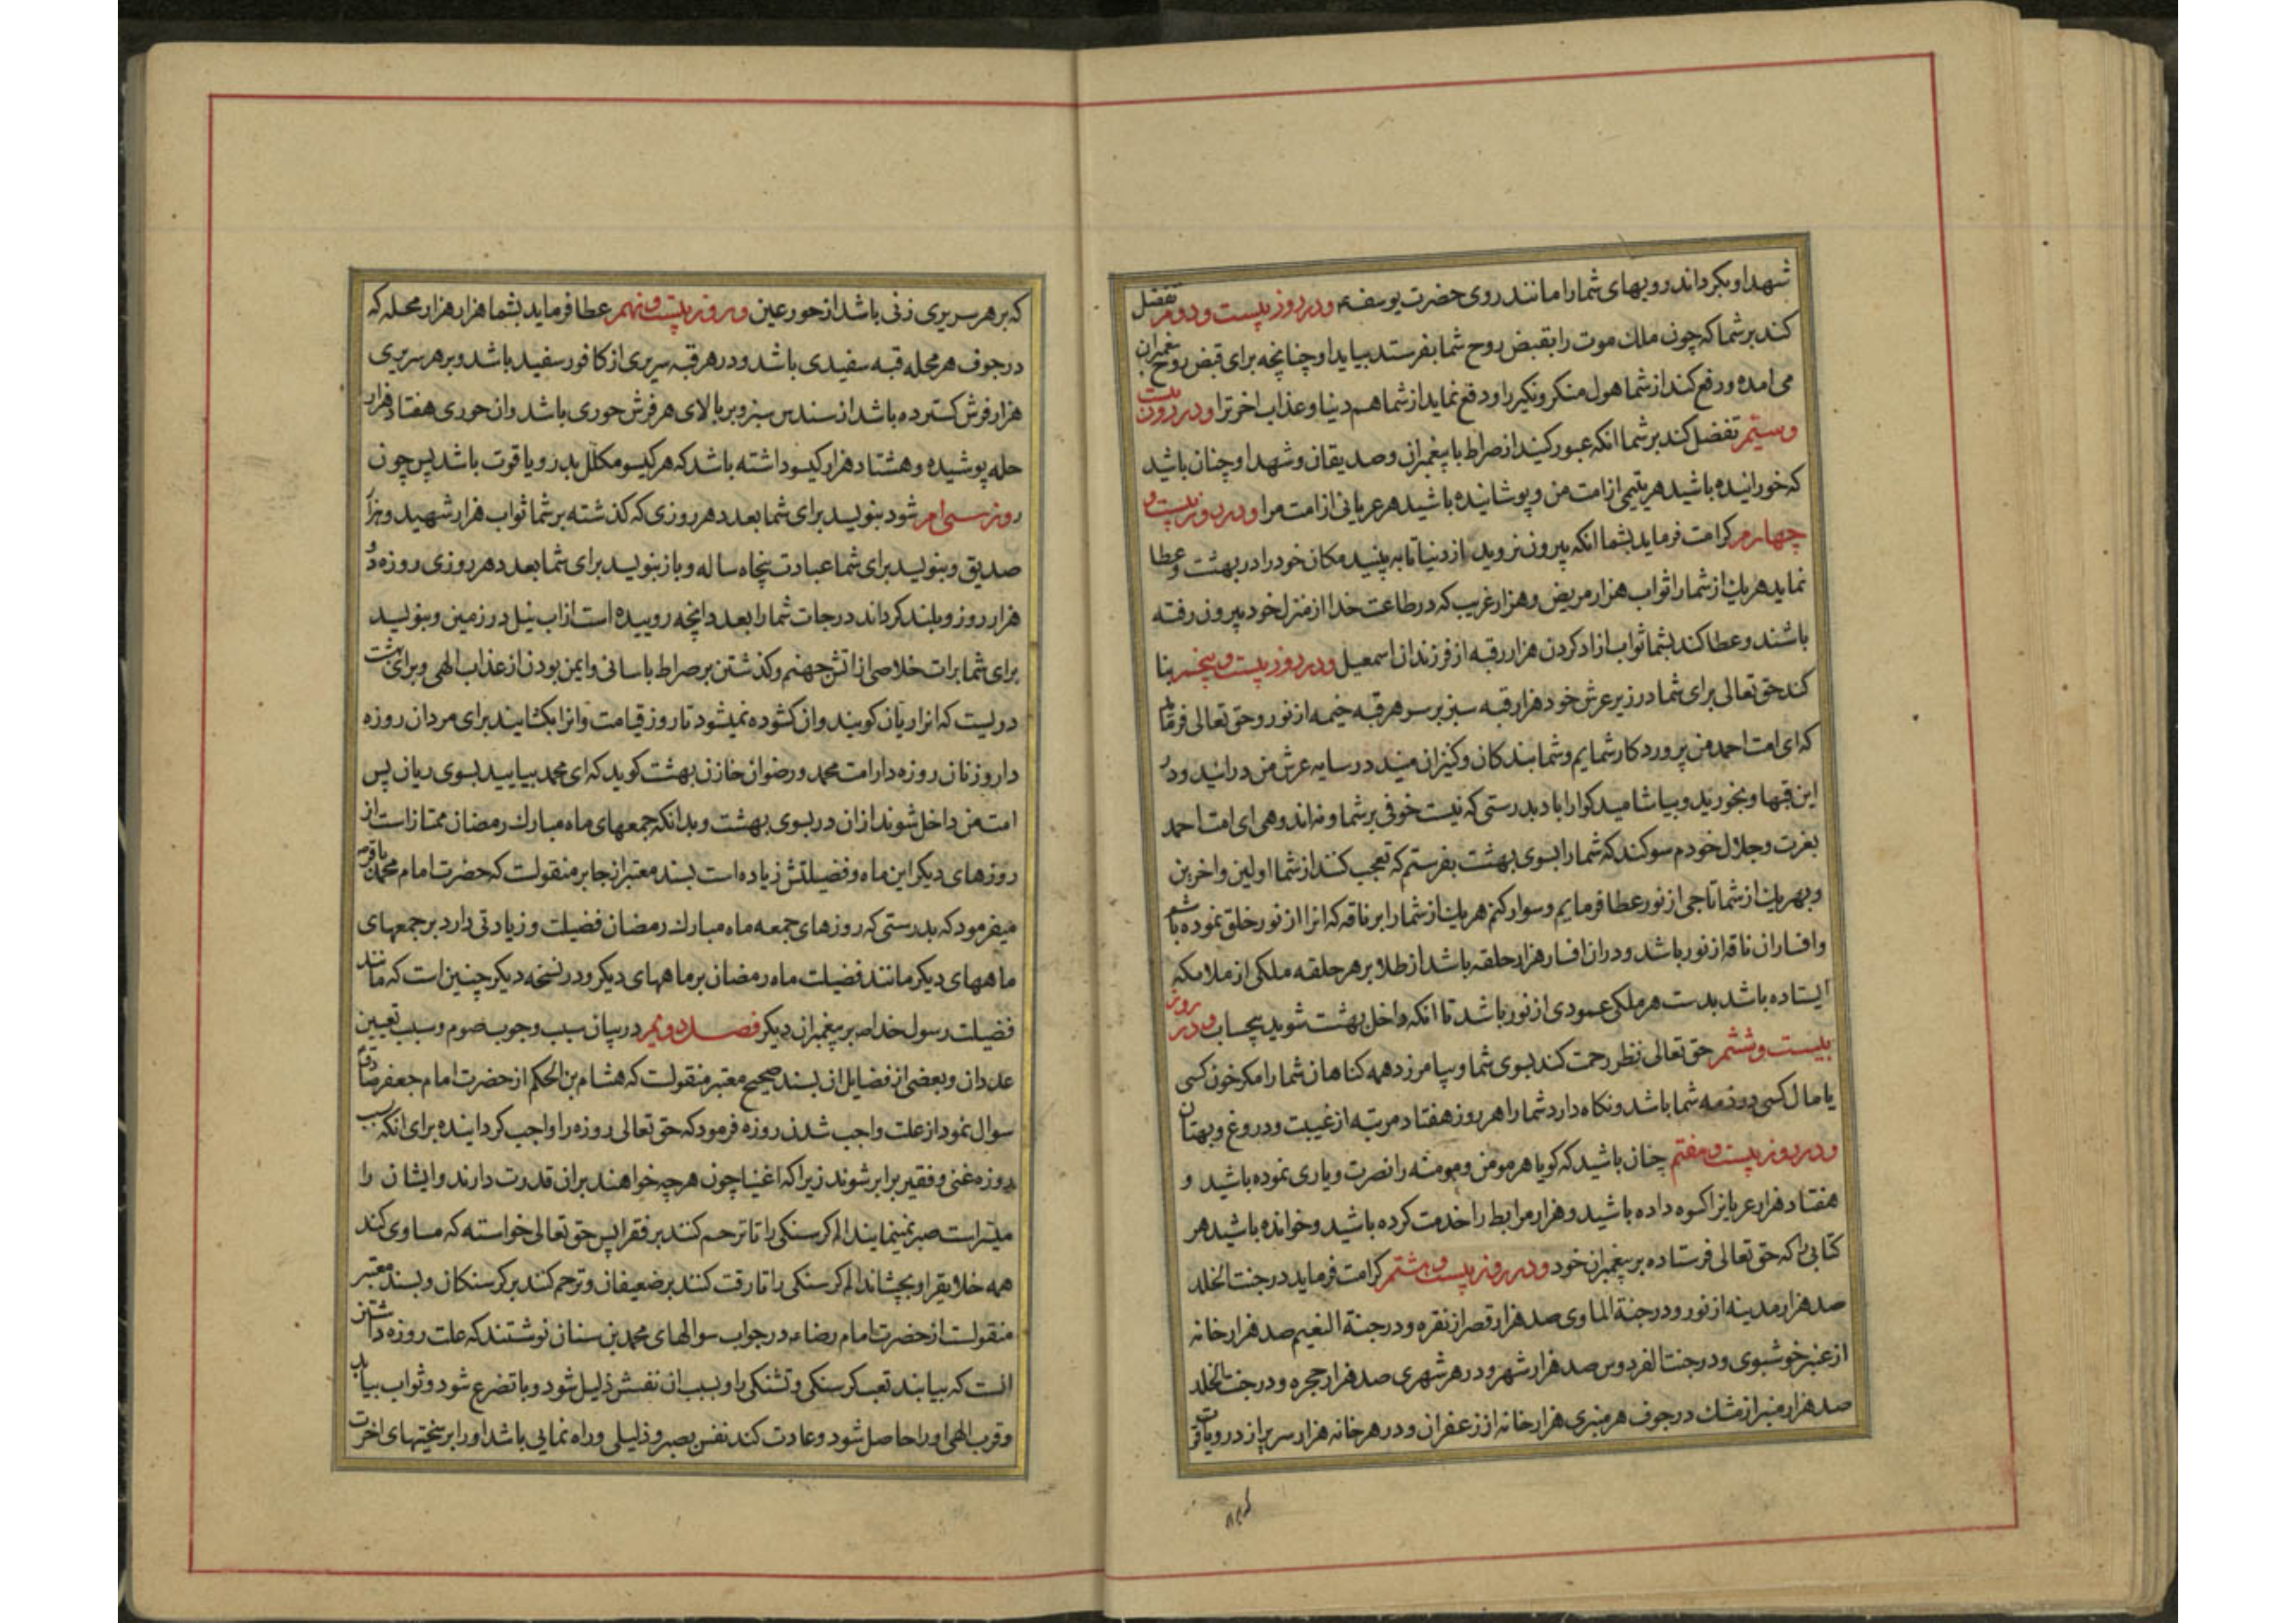 شهدا و بکرداند رویهای شما را مانند روی حضرت یوسف و در روز بیست و دوم تفضل
کند بر شما که چون ملك موت را بقبض روح شما بفرستد بیاید او چنانچه برای قبض روح پیغمبران
می آمده و رفع کند از شما هول منکر و نکیر را و دفع نماید از شما هم دنیا و عذاب اخرترا و در روز بیست
و سیّم تفضل کند بر شما انکه عبور کنید از صراط با پیغمبران و صدیقان و شهدا و چنان باشید
که خورانیده باشید هر یتیمی از امت من و پوشانیده باشید هر عریانی از امت مرا و در روز بیست و
چهارم کرامت فرماید بشما انکه بیرون نروید از دنیا تا به بینید مکان خود را در بهشت و عطا
نماید هر یك از شما را ثواب هزار مریض و هزار غریب که در طاعت خدا از منزل خود بیرون رفته
باشند و عطا کند بشما ثواب ازاد کردن هزار رقبه از فرزندان اسمعیل و در روز بیست و پنجم بنا
کند حق تعالی برای شما در زیر عرش خود هزار قبه سبز بر سر هر قبه خیمه از نور و حق تعالی فرماید
که ای امت احمد من پروردکار شمایم و شما بندکان و کنیزان منید در سایه عرش من درائید و در
این قبها و بخورید و بیاشامید کوارا باد بدرستی که نیست خوفی بر شما و نه اندوهی ای امت احمد
بعزت و جلال خودم سوکند که شما را بسوی بهشت بفرستم که تعجب کنند از شما اولین و اخرین
و بهر یك از شما تاجی از نور عطا فرمایم و سوار کنم هر یك از شما را بر ناقه که انرا از نور خلق نموده باشم
و افسار ان ناقه از نور باشد و در ان افسار هزار حلقه باشد از طلا بر هر حلقه ملکی از ملائکه
ایستاده باشد بدست هر ملکی عمودی از نور باشد تا انکه داخل بهشت شوید بیحساب و در روز
بیست و ششم حق تعالی نظر رحمت کند بسوی شما و بیامرزد همه کناهان شما را مکر خون کسی
یا مال کسی در ذمه شما باشد و نکاه دارد شما را هر روز هفتاد مرتبه از غیبت و دروغ و بهتان
و در روز بیست و هفتم چنان باشید که کویا هر مومن و مومنه را نصرت و یاری نموده باشید و
هفتاد هزار عریانرا کسوه داده باشید و هزار مرابط را خدمت کرده باشید و خوانده باشید هر
کتابی را که حق تعالی فرستاده بر پیغمبران خود و در روز بیست و هشتم کرامت فرماید در جنت الخلد
صد هزار مدینه از نور و در جنة الماوی صد هزار قصر از نقره و در جنة النعیم صد هزار خانه
از عنبر خوشبوی و در جنت الفردوس صد هزار شهر و در هر شهری صد هزار حجره و در جنت الخلد
صد هزار منبر از مشك در جوف هر منبری هزار خانه از زعفران و در هر خانه هزار سریر از در و یاقوت
که بر هر سریری زنی باشد از حور عین و روز بیست و نهم عطا فرماید بشما هزار هزار محله که
در جوف هر محله قبه سفیدی باشد و در هر قبه سریری از کافور سفید باشد و بر هر سریری
هزار فرش کسترده باشد از سندس سبز و بر بالای هر فرش حوری باشد و ان حوری هفتاد هزار
حله پوشیده و هشتاد هزار کیسو داشته باشد که هر کیسو مکلل بدر و یاقوت باشد پس چون
روز سی ام شود بنویسد برای شما بعدد هر روزی که کذشته بر شما ثواب هزار شهید و هزار
صدیق و بنویسد برای شما عبادت پنجاه ساله و باز بنویسد برای شما بعدد هر روزی روزه دو
هزار روز و بلند کرداند درجات شما را بعدد انچه روییده است از اب نیل در زمین و بنویسد
برای شما برات خلاصی از اتش جهنم و کذشتن بر صراط باسانی و ایمن بودن از عذاب الهی و برای بهشت
دریست که انرا ریان کویند و ان کشوده نمیشود تا روز قیامت و انرا بکشایند برای مردان روزه
دار و زنان روزه دار امت محمد و رضوان خازن بهشت کوید که ای محمد بیایید بسوی ریان پس
امت من داخل شوند از ان در بسوی بهشت و بدانکه جمعهای ماه مبارك رمضان ممتاز است از
روزهای دیکر این ماه و فضیلتش زیاده است بسند معتبر از جابر منقولست که حضرت امام محمد باقر
میفرمود که بدرستی که روزهای جمعه ماه مبارك رمضان فضیلت و زیادتی دارد بر جمعهای
ماههای دیکر مانند فضیلت ماه رمضان بر ماههای دیکر و در نسخه دیکر چنین است که مانند
فضیلت رسول خدا ص بر پیغمبران دیکر فصل دوم در بیان سبب وجوب صوم و سبب تعیین
عدد ان و بعضی از فضایل ان بسند صحیح معتبر منقولست که هشام بن الحکم از حضرت امام جعفر صادق
سوال نمود از علت واجب شدن روزه فرمود که حق تعالی روزه را واجب کردانیده برای انکه بسبب
روزه غنی و فقیر برابر شوند زیرا که اغنیا چون هرچه خواهند بران قدرت دارند و ایشان را
میّسر است صبر نمینمایند الم کرسنکی را تا ترحم کنند بر فقرا پس حق تعالی خواسته که مساوی کند
همه خلایقرا و بچشاند الم کرسنکی را تا رقت کنند بر ضعیفان و ترحم کند بر کرسنکان و بسند معتبر
منقولست از حضرت امام رضا ع در جواب سوالهای محمد بن سنان نوشتند که علت روزه داشتن
انست که بیابند تعب کرسنکی و تشنکی را و بسبب ان نفسش ذلیل شود و با تضرع شود و ثواب بیابد
و قرب الهی او را حاصل شود و عادت کند نفس بصبر و ذلیلی و راه نمایی باشد او را بر سختیهای اخرت